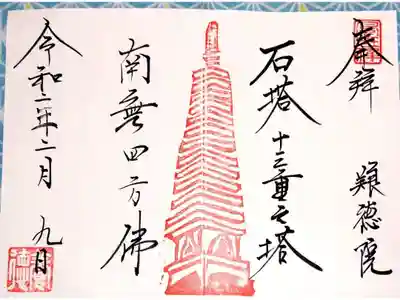 奉拝
難徳院
石塔 十三重之塔
南無四方佛
令和一年二月 九日